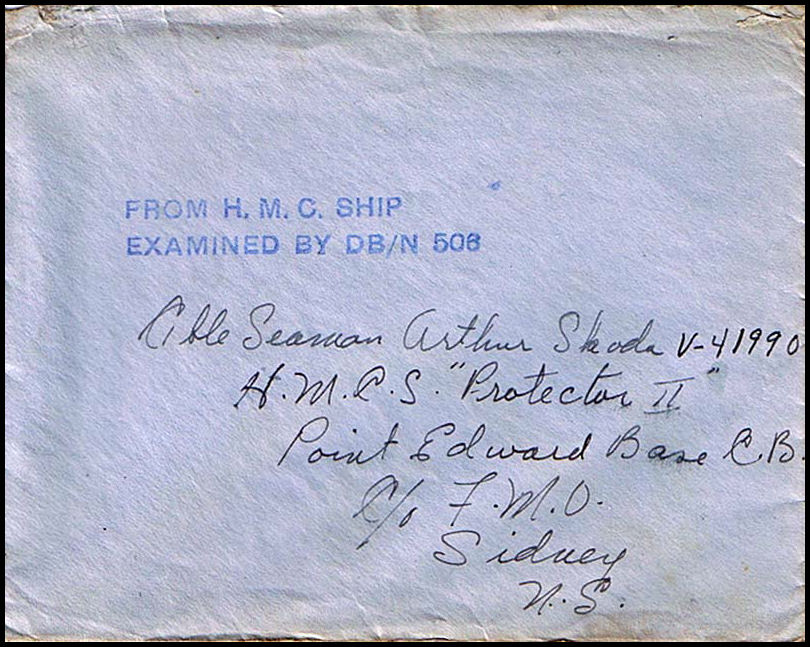 FROM H. M. C. SHIP
EXAMINED BY DB/N 506
Able Seaman Arthur Skoda V-41990
H.M.C.S. "Protector II"
Point Edward Base C.B.
C/o F.M.O.
Sidney
N.S.